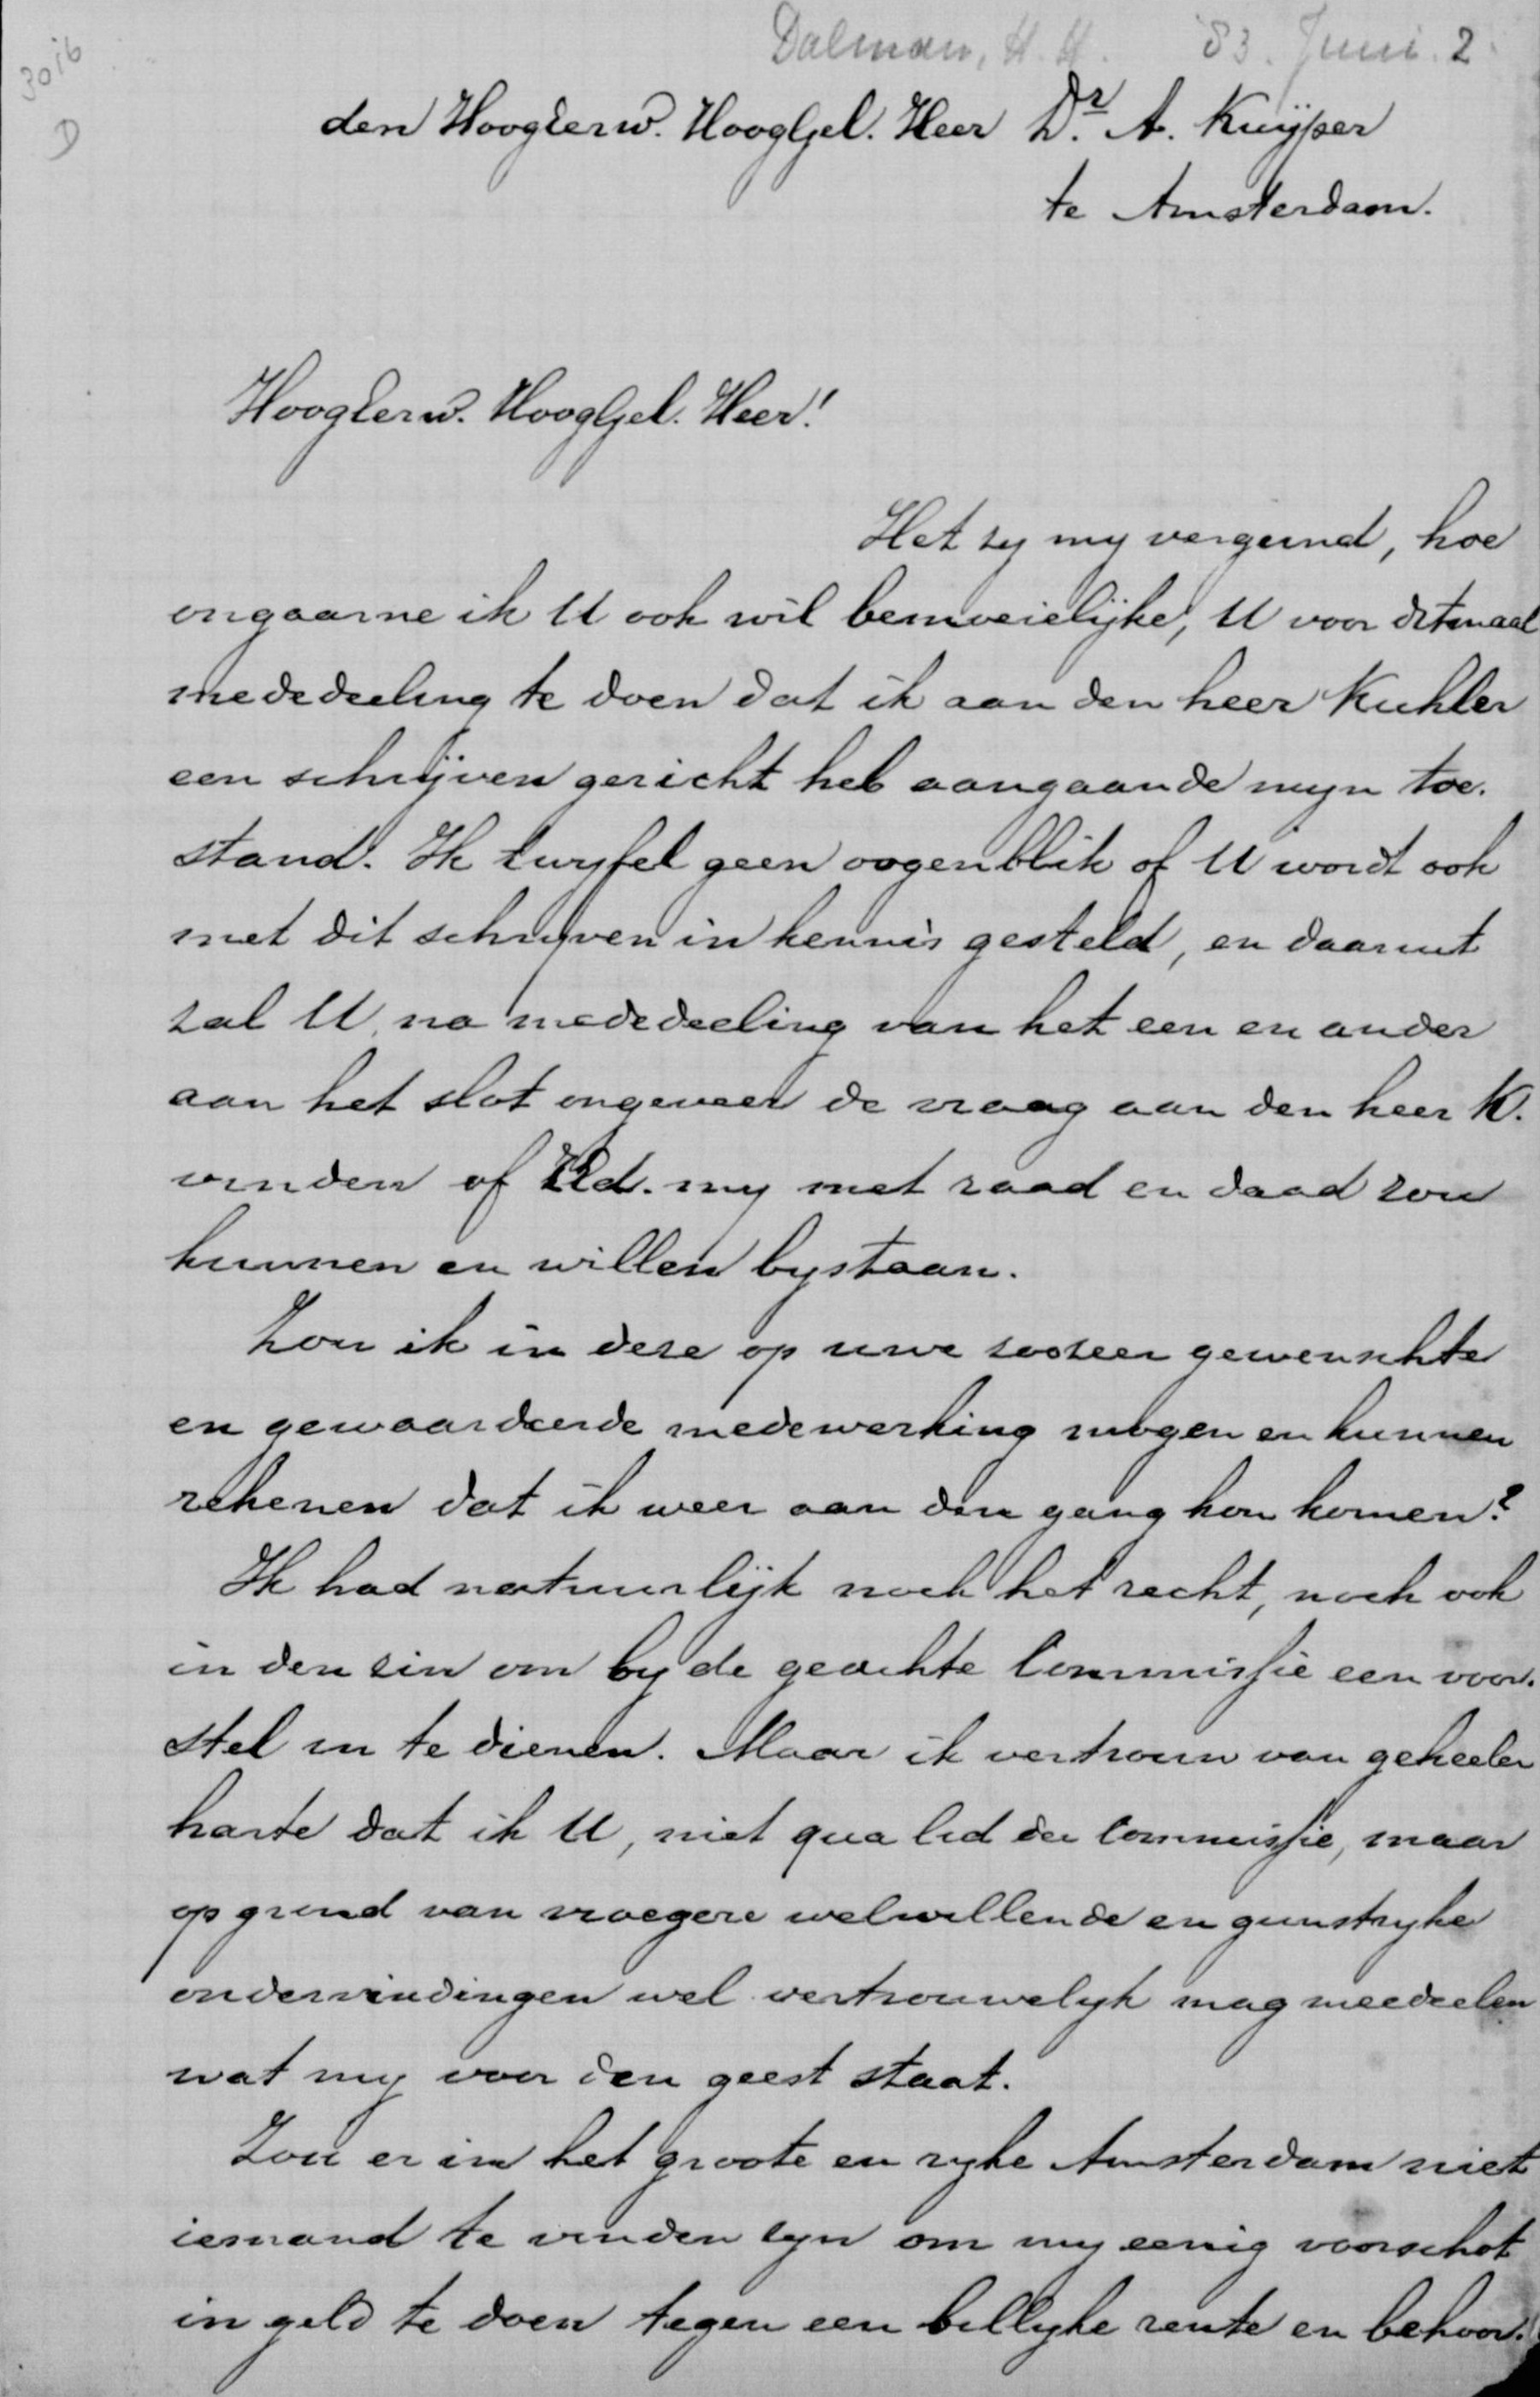 Dalman, H. H. '83. Juni. 2.
3016
D
den HoogEerw. HoogGel. Heer Dr. A. Kuÿper
te Amsterdam.
HoogEerw. HoogGel. Heer!
Het zy my vergund, hoe
ongaarne ik U ook wil bemoeielijke, U voor ditmaal
mededeeling te doen dat ik aan den heer Kuhler
een schrijven gericht heb aangaande myn toe-
stand. Ik twyfel geen oogenblik of U wordt ook
met dit schryven in kennis gesteld, en daaruit
zal U na mededeeling van het een en ander
aan het slot ongeveer de vraag aan den heer K.
vinden of ZEd. my met raad en daad zou
kunnen en willen bystaan.
Zou ik in deze op uwe zoozeer gewenschte
en gewaardeerde medewerking mogen en kunnen
rekenen dat ik weer aan den gang kon komen?
Ik had natuurlijk noch het recht, noch ook
in den zin om by de geachte Commissie een voor-
stel in te dienen. Maar ik vertrouw van geheeler
harte dat ik U, niet qua lid der Commissie, maar
op grond van vroegere welwillende en gunstryke
ondervindingen wel vertrouwelyk mag meedeelen
wat my voor den geest staat.
Zou er in het groote en ryke Amsterdam niet
iemand te vinden zyn om my eenig voorschot
in geld te doen tegen een billyke rente en behoor-